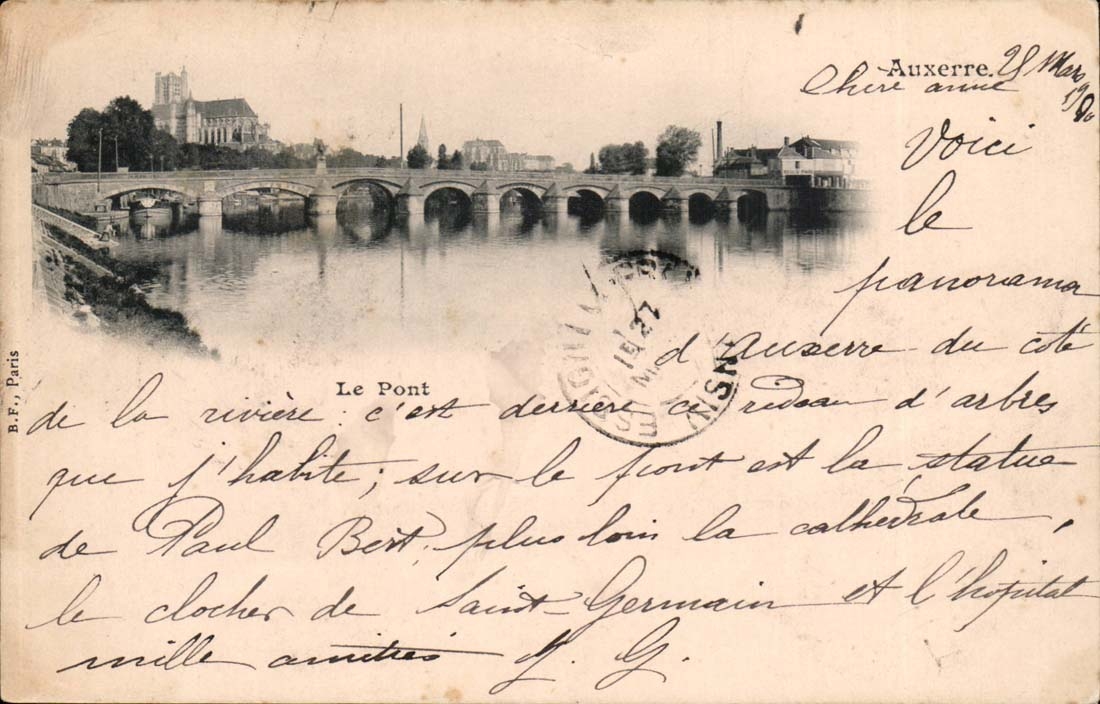 Auxerre. 25 Mars
Chère amie
Voici
le
panorama
d'Auxerre du côté
Le Pont
B. F., Paris
de la rivière : c'est derrière ce rideau d'arbres
que j'habite ; sur le pont est la statue
de Paul Bert, plus loin la cathedrale,
le clocher de Saint-Germain et l'hopital
mille amitiés J. G.